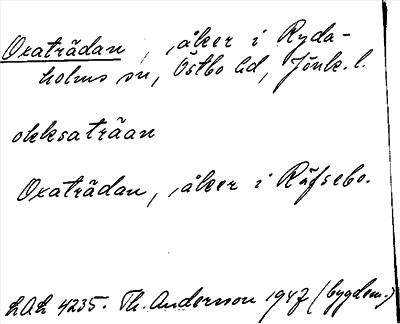 Oxaträdan, åker i Ryda-
holms sn, Östbo hd, Jönk. l.
okksaträan
Oxaträdan, åker i Räfsebo.
LAL 4235. Th. Andersson 1947 (bygdem.)